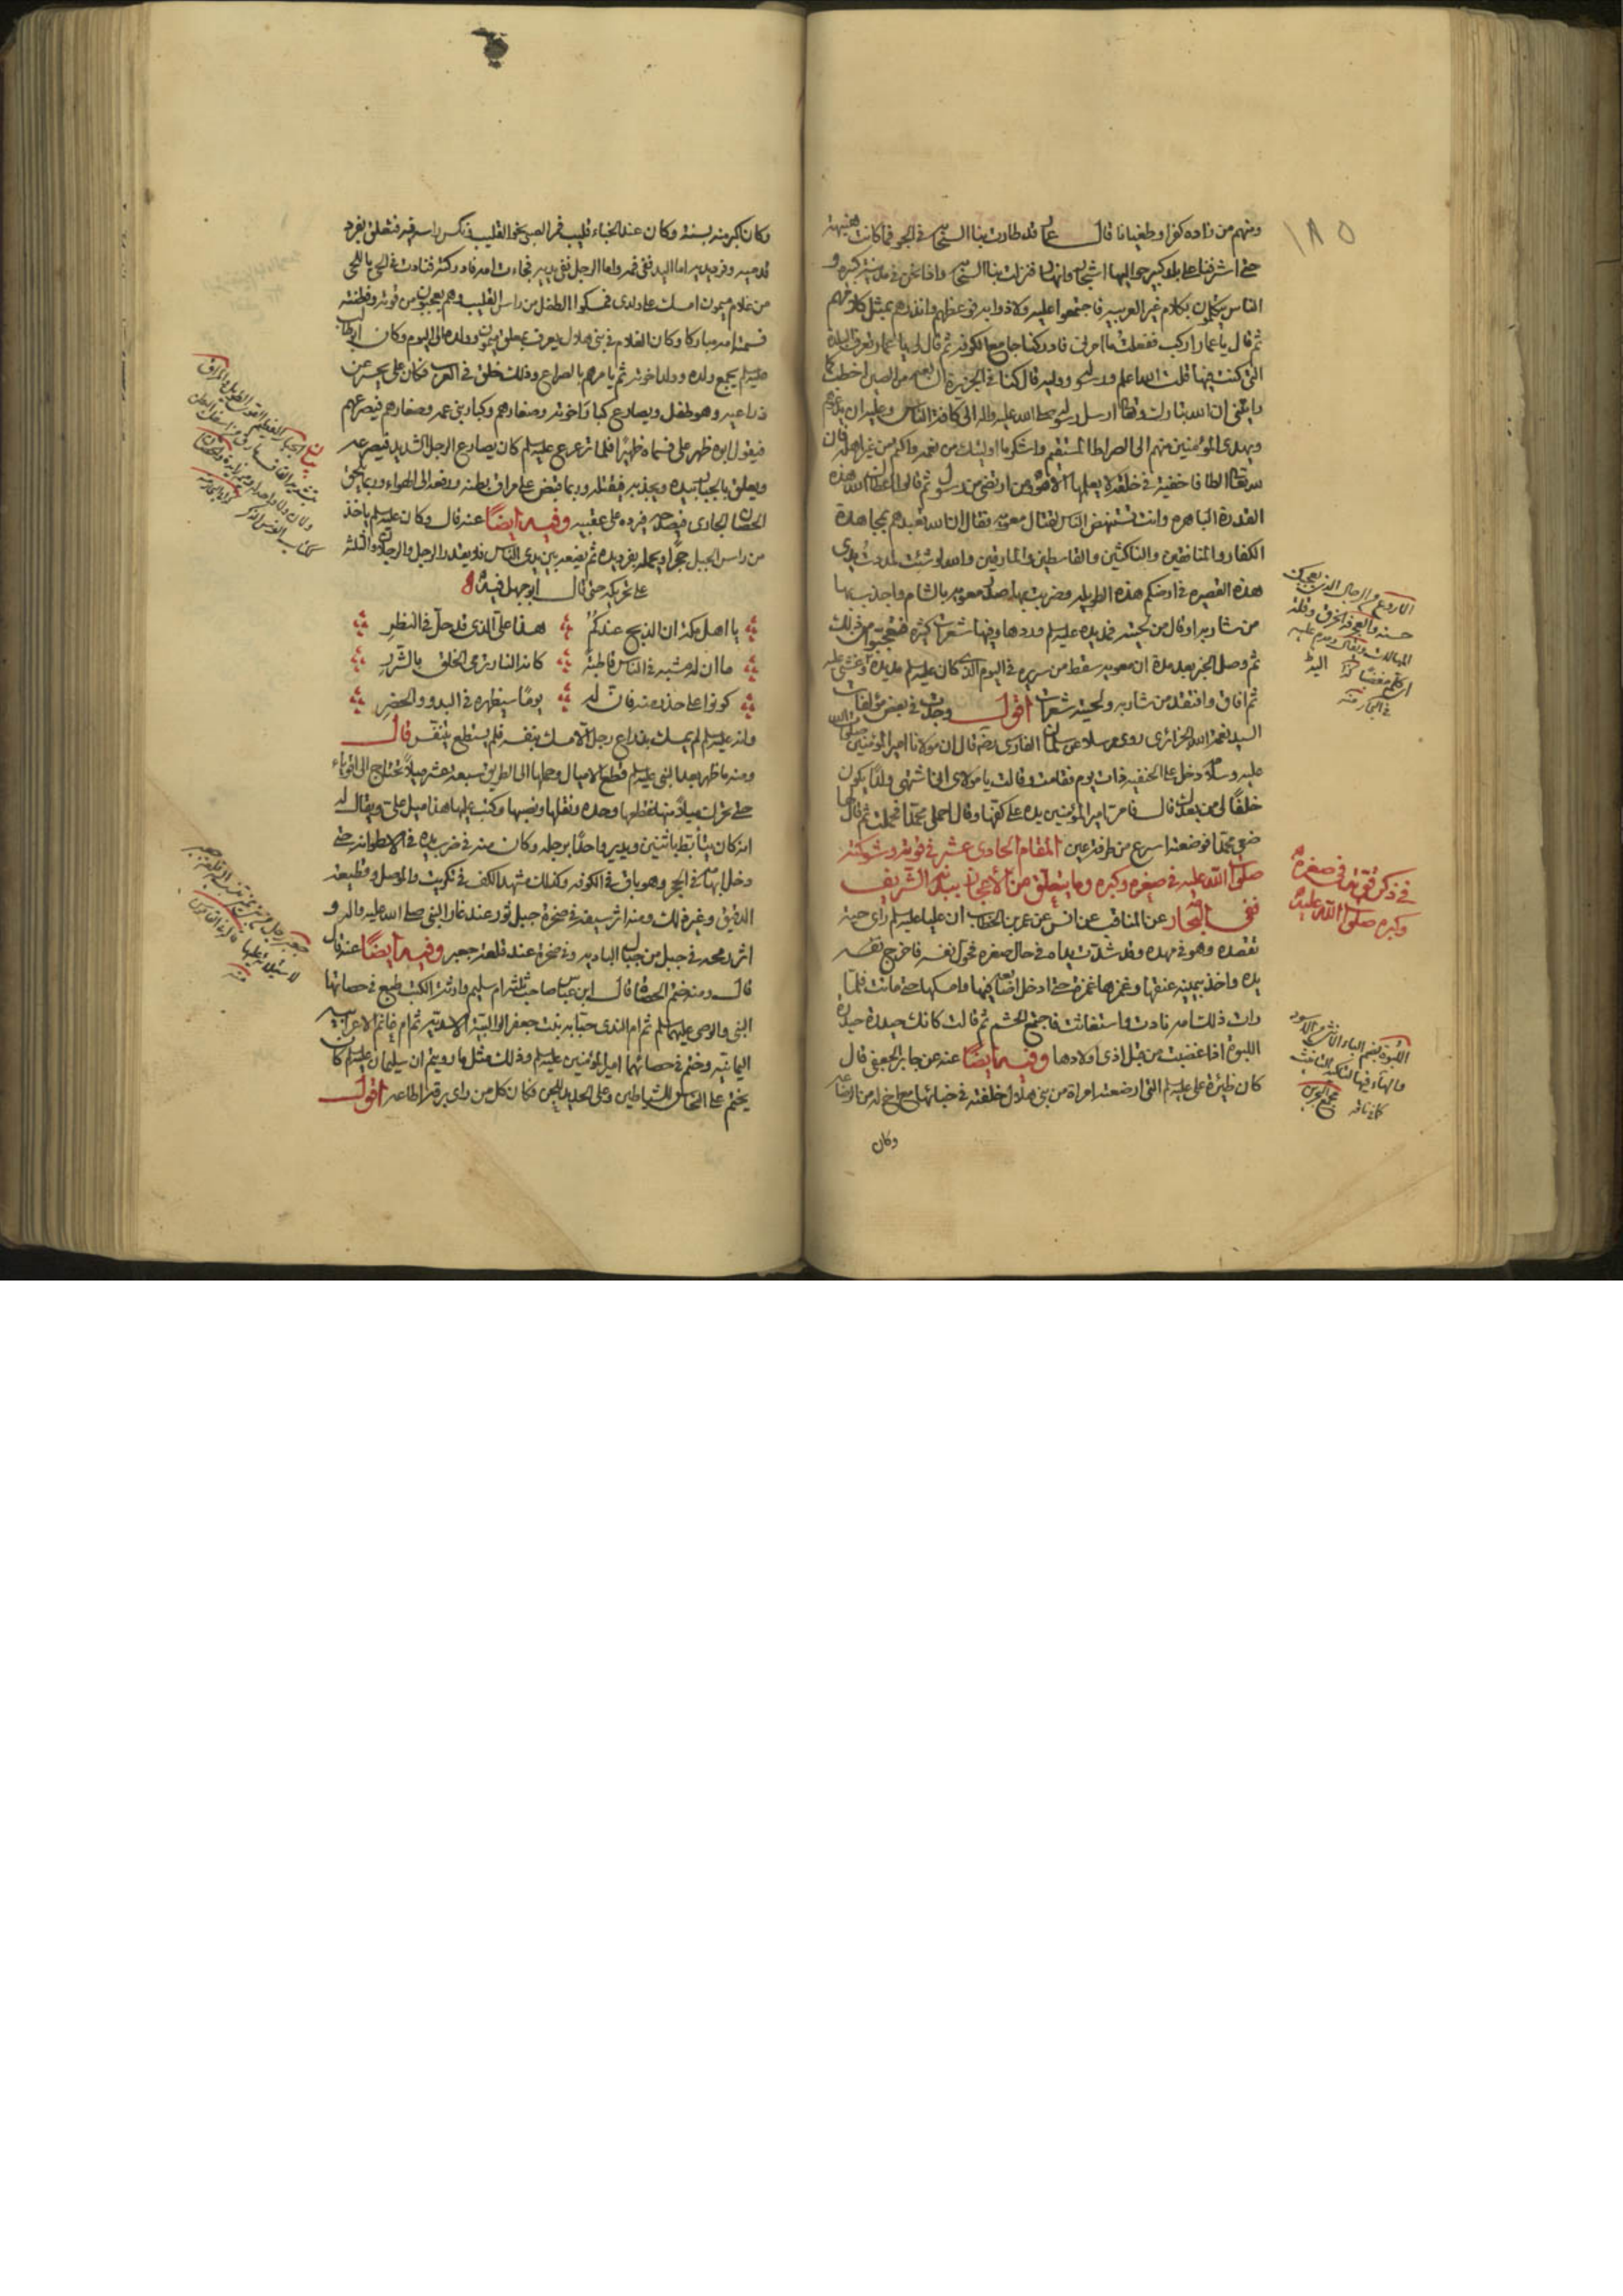 ١٨٥
ومنهم من زاده كفرا وطغيانا قال عمار قد طارت بنا السحابة في الجو فما كانت هنيهة
حتى اشرفنا على بلد كبير حواليها اشجار وانهار فنزلت بنا السحابة واذا نحن في مدينة كبيرة و
الناس يتكلمون بكلام غير العربية فاجتمعوا عليه ولاذوا به فوعظهم وانذرهم بمثل كلامهم
ثم قال يا عمار اركب ففعلت ما امرني فادركنا جامع الكوفة ثم قال لي يا عمار تعرف البلدة
التي كنت فيها قلت الله اعلم ورسوله ووليه قال كنا في الجزيرة السابعة من الصين اخطب كما
رايتني ان الله تبارك وتعالى ارسل رسوله صلى الله عليه واله الى كافة الناس وعليه ان يدعوهم
ويهدي المؤمنين منهم الى الصراط المستقيم واشكر ما اوليتك من نعمة واكتم من غير اهله فان
لله تعالى الطافا خفية في خلقه لا يعلمها الا هو ومن ارتضى من رسول ثم قالوا اعطاك الله هذه
القدرة الباهرة وانت تستنهض الناس لقتال معوية فقال ان الله تعبدهم بمجاهدة
الكفار والمنافقين والناكثين والقاسطين والمارقين والله لو شئت لمددت يدي
هذه القصيرة في ارضكم هذه الطويلة وضربت بها صدر معوية بالشام واجذب بها
من شاربه او قال من لحيته فمد يده عليه السلم وردها وفيها شعرات كثيرة فتعجبوا من ذلك
ثم وصل الخبر بعد مدة ان معوية سقط من سريره في اليوم الذي كان عليه السلم مد يده وغشي عليه
ثم افاق وافتقد من شاربه ولحيته شعرات اقول وجدت في بعض مؤلفات
السيد نعمة الله الجزائري روى مرسلا عن سلمان الفارسي رضه قال ان مولانا امير المؤمنين صلوات الله
عليه وسلامه دخل على الحنفية ذات يوم فقامت وقالت يا مولاي اني اشتهي ولدا يكون
خلفا لي من بعدك قال فامر امير المؤمنين يده على كتفها وقال احملي محمدا فحملت ثم قال لها
ضعي محمدا فوضعته اسرع من طرفة عين المقام الحادي عشر في قوته وشوكته
صلوات الله عليه في صغره وكبره وما يتعلق من الاعجاز ببدنه الشريف
ففي البحار عن المناقب عن انس عن عمر بن الخطاب ان عليا عليه السلم راى حية
تقصده وهو في مهده وقد شدت يداه في حال صغره فحول نفسه فاخرج
يده واخذ بيمينه عنقها وغمزها غمزة حتى ادخل اصابعه فيها وامسكها حتى ماتت فلما
رات ذلك امه نادت واستغاثت فاجتمع الحشم ثم قالت كانك حيدرة حيدرة
اللبوة اذا غضبت من قبل اذى اولادها وفيه ايضا عنه عن جابر الجعفي قال
كان ظئرة علي عليه السلم التي ارضعته امراة من بني هلال خلفته في خبائها مع اخ له من الرضاعة
وكان
في ذكر قوته في صغره
وكبره صلوات الله عليه
اللبوة بضم الباء الانثى من الاسود
والهاء فيها لتاكيد التانيث
كما في ناقة
مجمع البحرين
وكان اكبر منه بسنة وكان عند الخباء قليب فمر الصبي نحو القليب ونكس راسه فيه فتعلق بفرد
قدميه وفرد يديه اما اليد ففي فمه واما الرجل ففي يديه فجاءت امه فادركته فنادت في الحي يا للحي
من غلام ميمون امسك علي ولدي فمسكوا الطفل من راس القليب وهم يعجبون من قوته وفطنته
فسمته امه مباركا وكان الغلام في بني هلال يعرف بمعلق ميمون وولده الى اليوم وكان ابو طالب
عليه السلم يجمع ولده وولد اخوته ثم يامرهم بالصراع وذلك خلق في العرب فكان علي يحسر عن
ذراعيه وهو طفل ويصارع كبار اخوته وصغارهم وكبار بني عمه وصغارهم فيصرعهم
فيقول ابوه ظهر علي فسماه ظهيرا فلما ترعرع عليه السلم كان يصارع الرجل الشديد فيصرعه
ويعلق بالجبار بيده ويجذبه فيقتله وربما قبض على مراق بطنه ورفعه الى الهواء وربما يلحق
الحصان الجاري فيصدمه فيرده على عقبيه وفيه ايضا عنه قال وكان عليه السلم ياخذ
من راس الجبل حجرا ويحمله بفرد يده ثم يضعه بين يدي الناس فلا يقدر الرجل والرجلان والثلثة
على تحريكه حتى قال ابو جهل فيه
يا اهل مكة ان الذبح عندكم هذا علي الذي قد جل في النظر
ما ان له مشبه في الناس قاطبة كانه النار ترمي الخلق بالشرر
كونوا على حذر منه فان له يوما سيظهره في البدو والحضر
وانه عليه السلم لم يمسك بذراع رجل الا مسك بنفسه فلم يستطع يتنفس قال
ومنه ما ظهر بعد النبي عليه السلم قطع الاميال وحملها الى الطريق سبعة عشر ميلا تحتاج الى اقوياء
حتى تحرك ميلا منها قطعها وحده ونقلها ونصبها وكتب عليها هذا ميل علي ويقال له
انه كان يتأبط باثنين ويدير واحدا برجله وكان منه في ضرب يده في الاسطوانة حتى
دخل ابهامه في الحجر وهو باق في الكوفة وكذلك مشهد الكف في تكريت والموصل وقطيعة
الدقيق وغير ذلك ومنه اثر سيفه في صخرة جبل ثور عند غار النبي صلى الله عليه واله و
اثر رمحه في جبل من جبال البادية وفي صخرة عند قلعة جعبر وفيه ايضا عنه قال
قال ومنه ختم الحصاة قال ابن عباس صاحب ثلثة ام سليم وارثة الكتب طبع في حصاتها
النبي والوصي عليهما السلم ثم ام الندى حبابة بنت جعفر الوالبية الاسدية ثم ام غانم الاعرابية
اليمانية وختم في حصاتها امير المؤمنين عليه السلم وذلك مثل ما رويتم ان سليمان عليه السلم كان
يختم على النحاس للشياطين وعلى الحديد للجن فكان كل من راى برقه اطاعه اقول